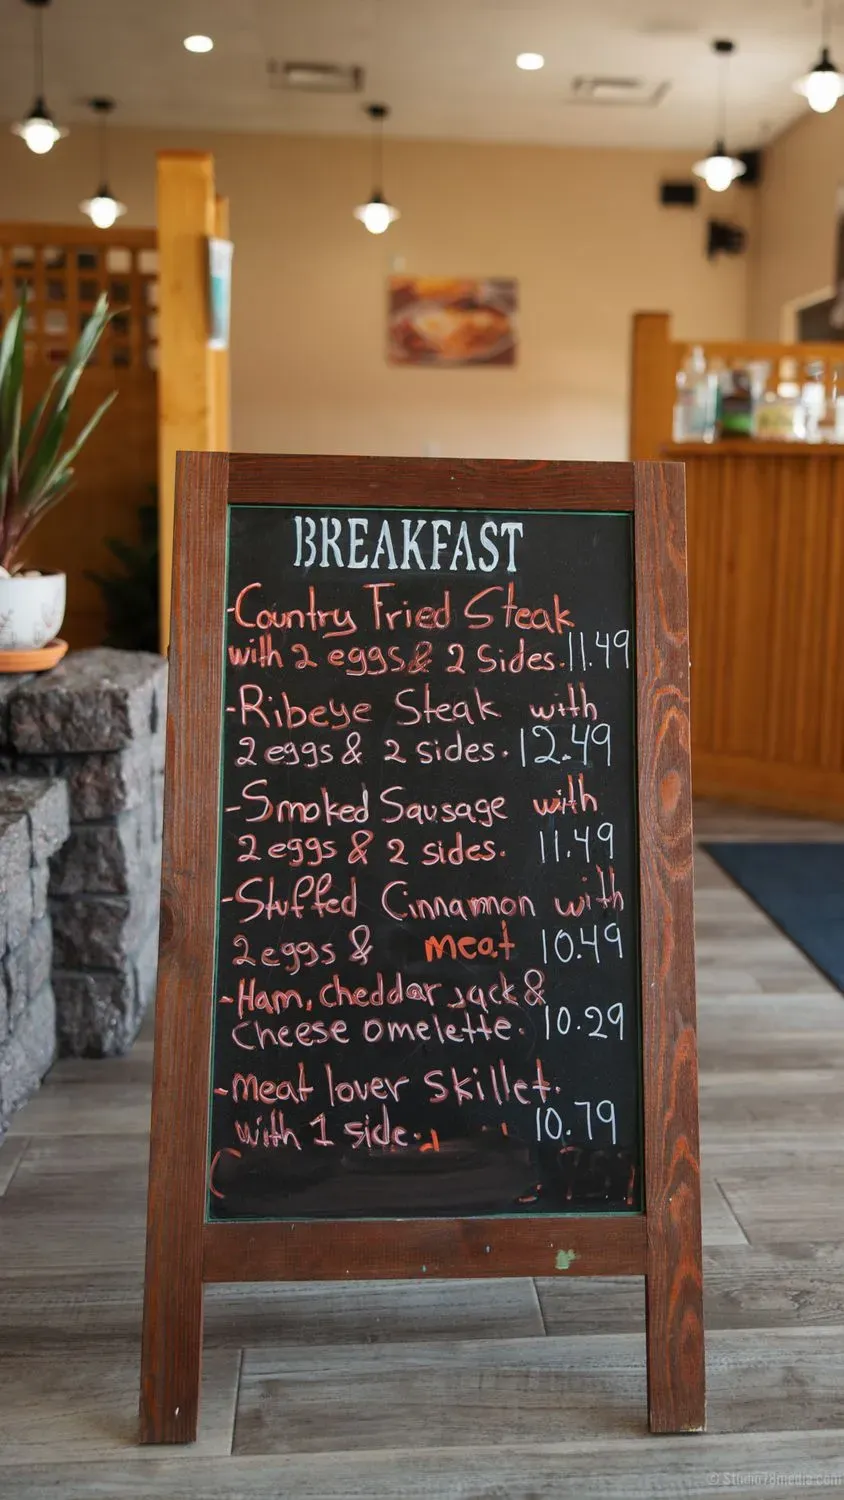 BREAKFAST
-Country Fried Steak
with 2 eggs & 2 Sides. 11.49
-Ribeye Steak with
2 eggs & 2 sides. 12.49
-Smoked Sausage with
2 eggs & 2 sides. 11.49
-Stuffed Cinnamon with
2 eggs & meat 10.49
-Ham, cheddar jack &
Cheese omelette. 10.29
-Meat lover Skillet.
with 1 side. 10.79
© Studio78media.com